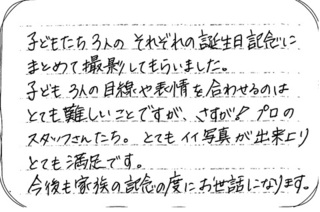 子どもたち3人の それぞれの誕生日記念に
まとめて撮影してもらいました。
子ども 3人の目線や表情を合わせるのは
とても難しいことですが、さすが!プロの
スタッフさんたち。とてもイイ写真が出来上り
とても満足です。
今後も家族の記念の度にお世話になります。